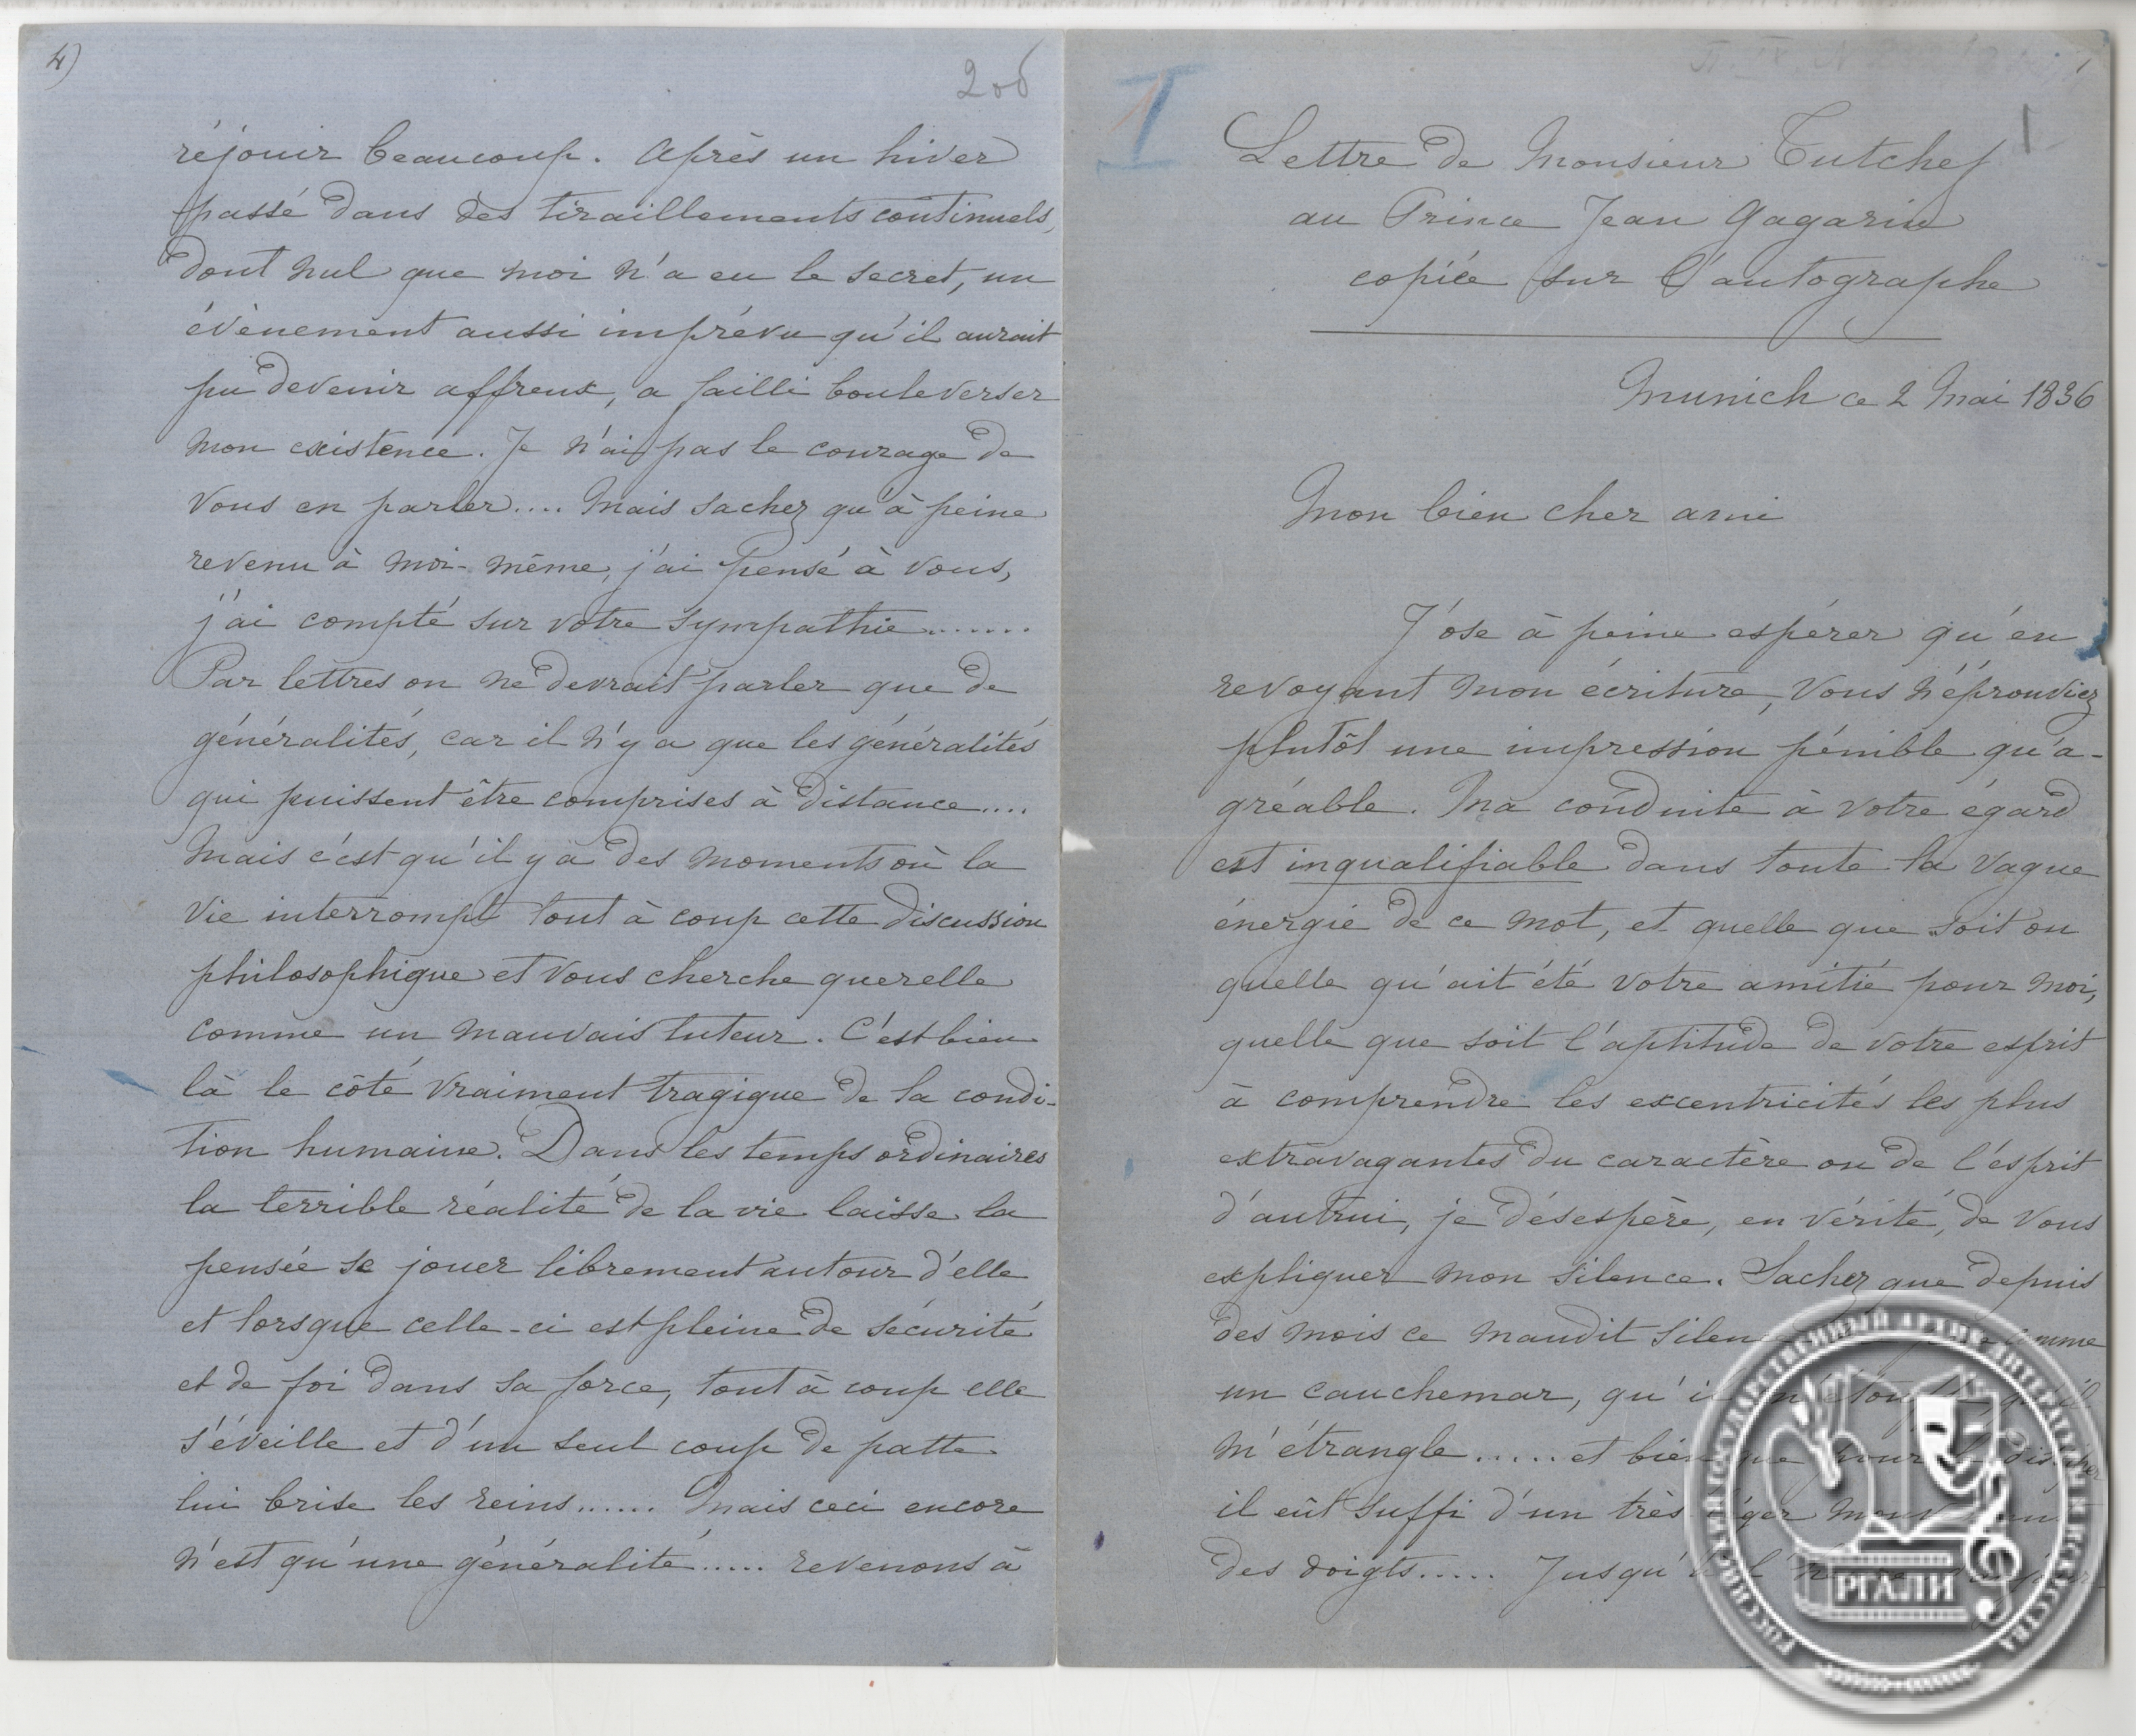 4)
206
réjouir beaucoup. Après un hiver
passé dans des tiraillements continuels,
dont nul que moi n'a eu le secret, un
évènement aussi imprévu qu'il aurait
pu devenir affreux, a failli bouleverser
mon existence. Je n'ai pas le courage de
vous en parler.... Mais sachez qu'à peine
revenu à moi-même, j'ai pensé à vous,
j'ai compté sur votre sympathie.......
Par lettres on ne devrait parler que de
généralités, car il n'y a que les généralités
qui puissent être comprises à distance....
Mais c'est qu'il y a des moments où la
vie interrompt tout à coup cette discussion
philosophique et vous cherche querelle
comme un mauvais tuteur. C'est bien
là le côté vraiment tragique de la condi-
tion humaine. Dans les temps ordinaires
la terrible réalité de la vie laisse la
pensée se jouer librement autour d'elle
et lorsque celle-ci est pleine de sécurité
et de foi dans sa force, tout à coup elle
s'éveille et d'un seul coup de patte
lui brise les reins...... Mais ceci encore
n'est qu'une généralité..... revenons à
I
1
Lettre de Monsieur Tutchef
au Prince Jean Gagarin
copiée sur l'autographe
Munich ce 2 Mai 1836
Mon bien cher ami
J'ose à peine espérer qu'en
revoyant mon écriture, vous n'éprouviez
plutôt une impression pénible qu'a-
gréable. Ma conduite à votre égard
est inqualifiable dans toute la vague
énergie de ce mot, et quelle que soit ou
quelle qu'ait été votre amitié pour moi,
quelle que soit l'aptitude de votre esprit
à comprendre les excentricités les plus
extravagantes du caractère ou de l'esprit
d'autrui, je désespère, en vérité, de vous
expliquer mon silence. Sachez que depuis
des mois ce maudit silen comme
un cauchemar, qu'il m'étouffe, qu'il
m'étrangle..... et bien que pour le dissiper
il eût suffi d'un très léger mouvement
des doigts..... Jusqu'à l'heure
РОССИЙСКИЙ ГОСУДАРСТВЕННЫЙ АРХИВ ЛИТЕРАТУРЫ И ИСКУССТВА
РГАЛИ